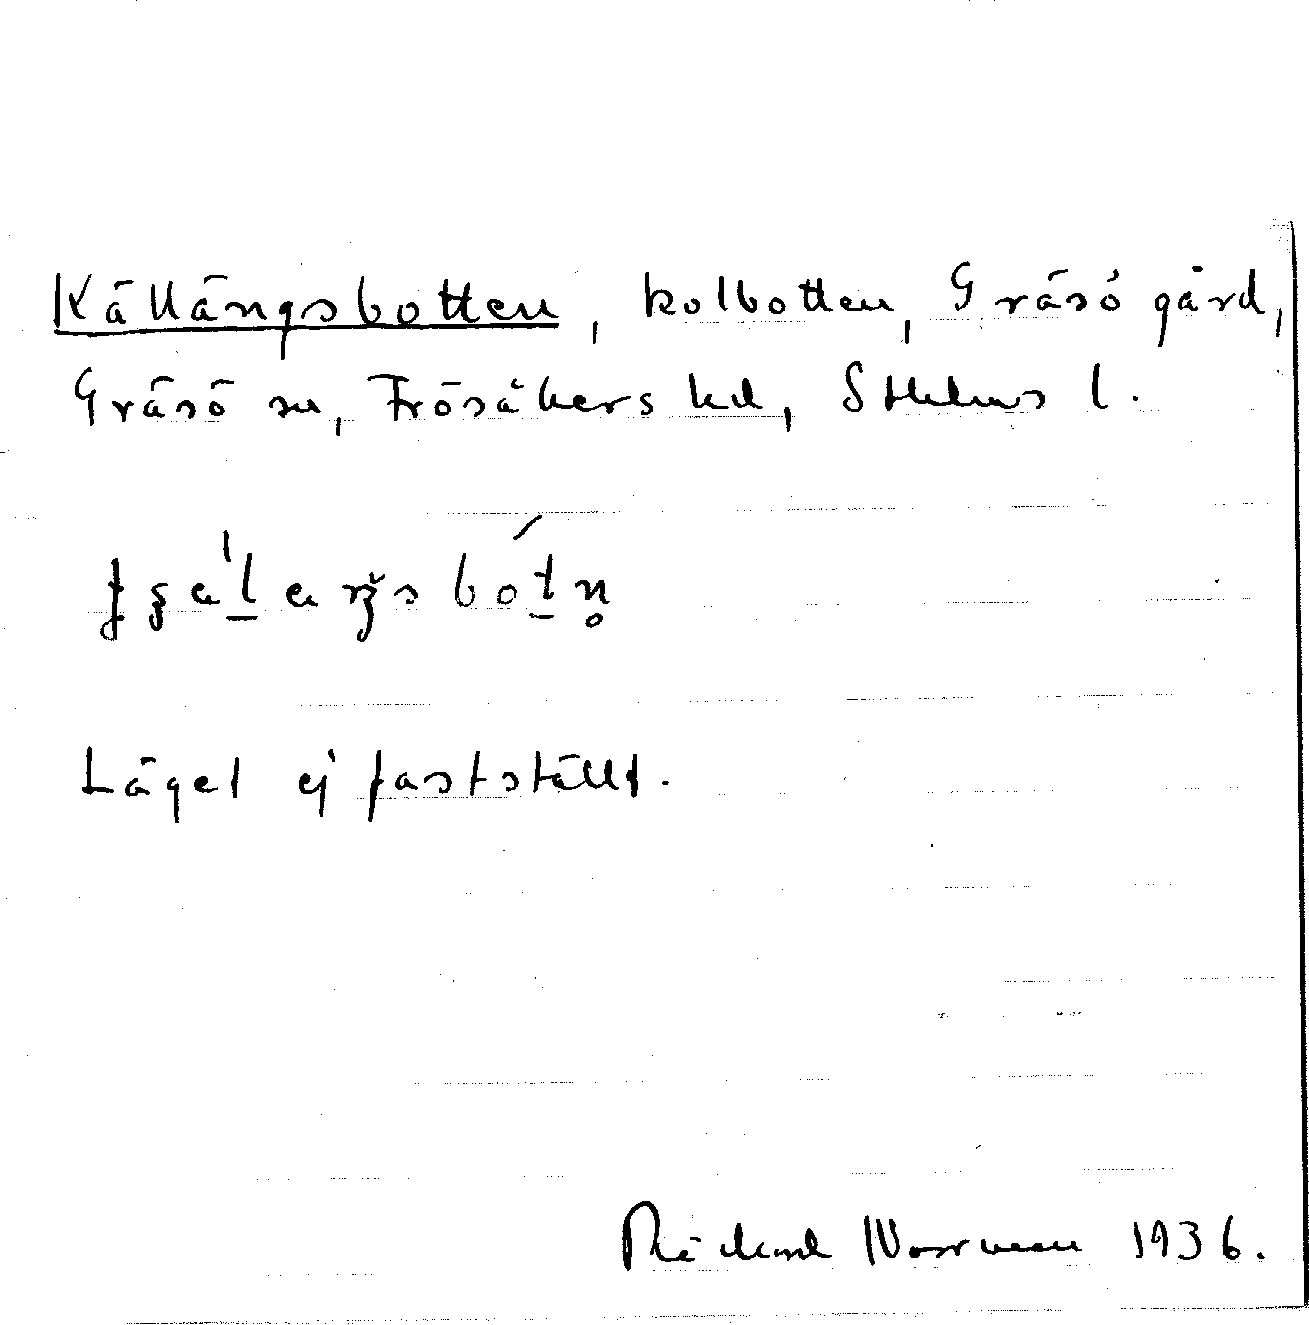 Källängsbotten, kolbotten, Gräsö gård,
Gräsö sn, Frösåkers hd, Sthlms l.
Läget ej fastställt.
Rickard Norrman 1936.